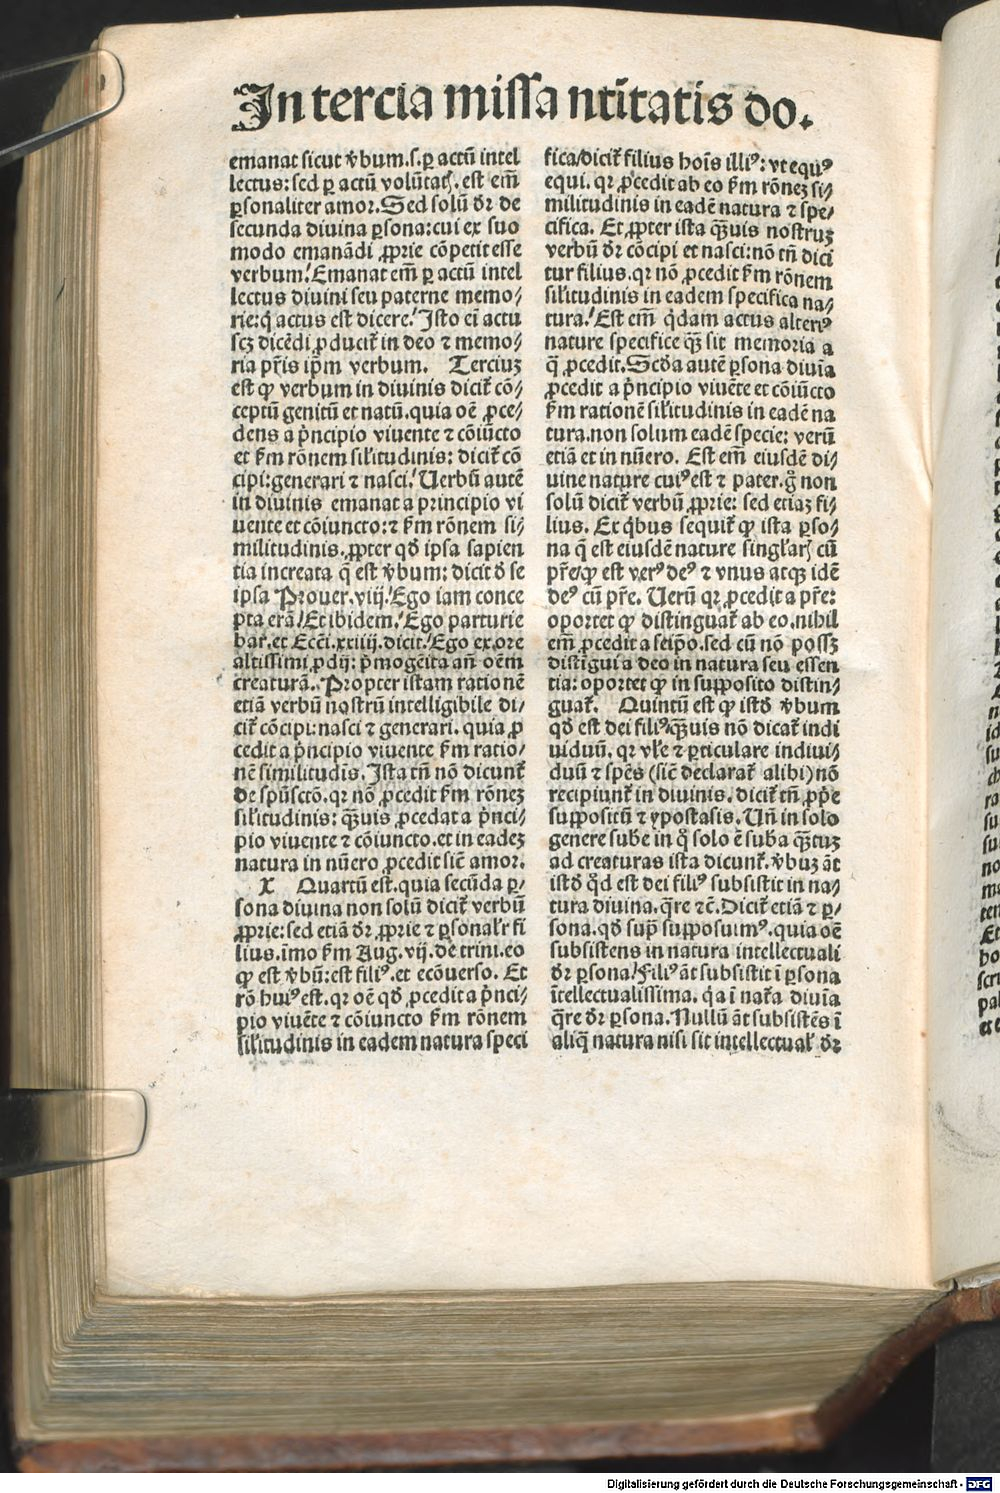 In tercia missa ntĩtatis do.
emanat sicut v̓bum.s.ꝑ actũ intel
lectus: sed ꝑ actũ volũtatꝭ. est em̃
ꝑsonaliter amor. Sed solũ dr̃ de
secunda diuina ꝑsona: cui ex suo
modo emanãdi ꝓprie cõpetit esse
verbum. Emanat em̃ ꝑ actũ intel
lectus diuini seu paterne memo/
rie: q̃ actus est dicere. Isto ei̇̃ actu
scꝫ dicẽdi ꝓducit̃ in deo ⁊ memo/
ria pr̃is ip̃m verbum. Terciuꝫ
est ꝙ verbum in diuinis dicit̃ cõ/
ceptũ genitũ et natũ. quia oẽ ꝓce/
dens a pͥncipio viuente ⁊ cõiũcto
et ẜm rõnem sil̃itudinis: dicit̃ cõ
cipi: generari ⁊ nasci. Uerbũ autẽ
in diuinis emanat a principio vi
uente et cõiuncto: ⁊ ẜm rõnem si/
militudinis. ꝓpter qď ipsa sapien
tia increata q̃ est v̓bum: dicit ď se
ipsa Prouer. viij. Ego iam conce
pta erã. Et ibidem. Ego parturie
bar. et Ecci. xxiiij. dicit. Ego ex ore
altissimi ꝓdij: pͥmogẽita añ oẽm
creaturã. Propter istam rationẽ
etiã verbũ nostrũ intelligibile di/
cit̃ cõcipi: nasci ⁊ generari. quia ꝓ
cedit a pͥncipio viuente ẜm ratio/
nẽ similitudĩs. Ista tñ nõ dicunt̃
de spũsctõ. qꝛ nõ ꝓcedit ẜm rõneꝫ
sil̃itudinis: qꝫuis ꝓcedat a pͥnci/
pio viuente ⁊ cõiuncto. et in eadeꝫ
natura in nũero ꝓcedit sicẽ amor.
X Quartũ est. quia secũda ꝑ/
sona diuina non solũ dicit̃ verbũ
ꝓprie: sed etiã dr̃ ꝓprie ⁊ ꝑsonal̃r fi
lius. ĩmo ẜm Aug. vij. de trini. eo
ꝙ est v̓bũ: est filiꝰ. et ecõuerso. Et
rõ huiꝰ est. qꝛ oẽ qď ꝓcedit a pͥnci/
pio viuẽte ⁊ cõiuncto ẜm rõnem
sil̃itudinis in eadem natura speci
fica/dicit̃ filius hoĩs illiꝰ: vt equꝰ
equi. qꝛ ꝓcedit ab eo ẜm rõneꝫ si/
militudinis in eadẽ natura ⁊ spe/
cifica. Et ꝓpter ista qꝫuis nostruꝫ
verbũ dr̃ cõcipi et nasci: nõ tñ dici
tur filius. qꝛ nõ ꝓcedit ẜm rõnem
sil̃itudinis in eadem specifica na/
tura. Est em̃ q̃dam actus alteriꝰ
nature specifice qꝫ sit memoria a
q̃ ꝓcedit. Scďa autẽ ꝑsona diuĩa
ꝓcedit a pͥncipio viuẽte et cõiũcto
ẜm rationẽ sil̃itudinis in eadẽ na
tura. non solum eadẽ specie: verũ
etiã et in nũero. Est em̃ eiusdẽ di/
uine nature cuiꝰ est ⁊ pater. gͦ non
solũ dicit̃ verbũ ꝓprie: sed etiaꝫ fi/
lius. Ex qͥbus sequit̃ ꝙ ista ꝑso/
na q̃ est eiusdẽ nature singl'arꝭ cũ
pr̃e/ꝙ est verꝰ deꝰ ⁊ vnus atqꝫ idẽ
deꝰ cũ pr̃e. Uerũ qꝛ ꝓcedit a pr̃e:
oportet ꝙ distinguat̃ ab eo. nihil
em̃ ꝓcedit a seip̃o. sed cũ nõ possꝫ
distĩgui a deo in natura seu essen
tia: oportet ꝙ in supposito distin/
guat̃. Quintũ est ꝙ istď v̓bum
qď est dei filiꝰ qꝫuis nõ dicat̃ indi
uiduũ. qꝛ vl̃e ⁊ ꝑticulare indiui/
duũ ⁊ spẽs (sicẽ declarat̃ alibi) nõ
recipiunt̃ in diuinis. dicit̃ tñ ꝓp̃e
suppositũ ⁊ ypostasis. Uñ in solo
genere sub̃e in qͦ solo ẽ sub̃a qꝫtuꝫ
ad creaturas ista dicunt̃. v̓buꝫ ãt
istď qď est dei filiꝰ subsistit in na/
tura diuina. q̃re ⁊c̃. Dicit̃ etiã ⁊ ꝑ/
sona. qď sup̃ supposuimꝰ. quia oẽ
subsistens in natura intellectuali
dr̃ ꝑsona. Filiꝰ ãt subsistit ĩ ꝑsona
ĩtellectualissima. qͥa ĩ nat̃a diuĩa
q̃re dr̃ ꝑsona. Nullũ ãt subsistẽs ĩ
aliq̃ natura nisi sit intellectual̃ dr̃
Digitalisierung gefördert durch die Deutsche Forschungsgemeinschaft - DFG